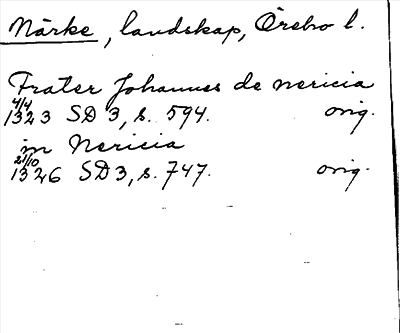 Närke, landskap, Örebro l.
Frater Johannes de nericia
4/4 1323 SD 3, s. 594. orig.
in Nericia
21/10 1326 SD 3, s. 747. orig.